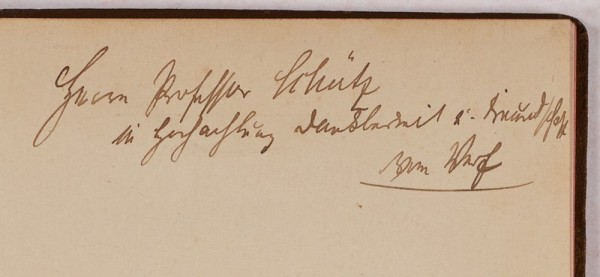 Herrn Professor Schütz
in Hochachtung Dankbarkeit u. Freundschaft
vom Verf